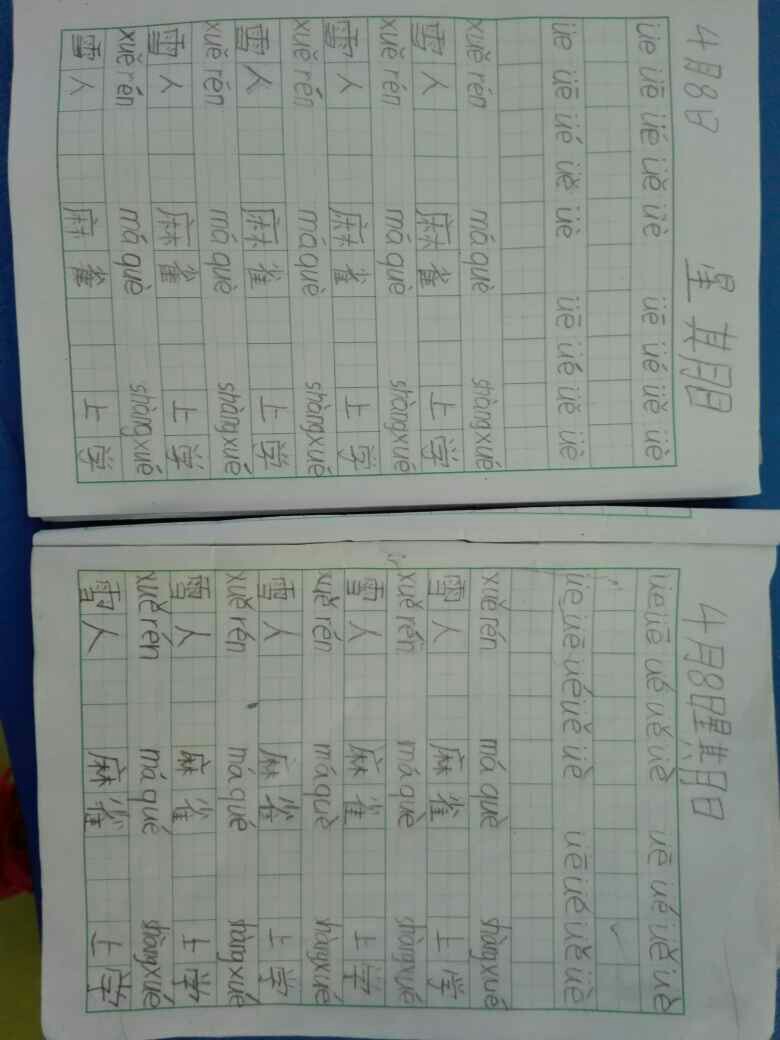 4月8日 星期日
üe üē üé üě üè üē üé üě üè
üe üē üé üě üè üē üé üě üè
xuě rén má què shàng xué
雪人 麻雀 上学
xuě rén má què shàng xué
雪人 麻雀 上学
xuě rén má què shàng xué
雪人 麻雀 上学
xuě rén má què shàng xué
雪人 麻雀 上学
xuě rén má què shàng xué
雪人 麻雀 上学
4月8日星期日
üe üē üé üě üè üē üé üě üè
üe üē üé üě üè üē üé üě üè
xuě rén má què shàng xué
雪人 麻雀 上学
xuě rén má què shàng xué
雪人 麻雀 上学
xuě rén má què shàng xué
雪人 麻雀 上学
xuě rén má qué shàng xué
雪人 麻雀 上学
xuě rén má qué shàng xué
雪人 麻雀 上学